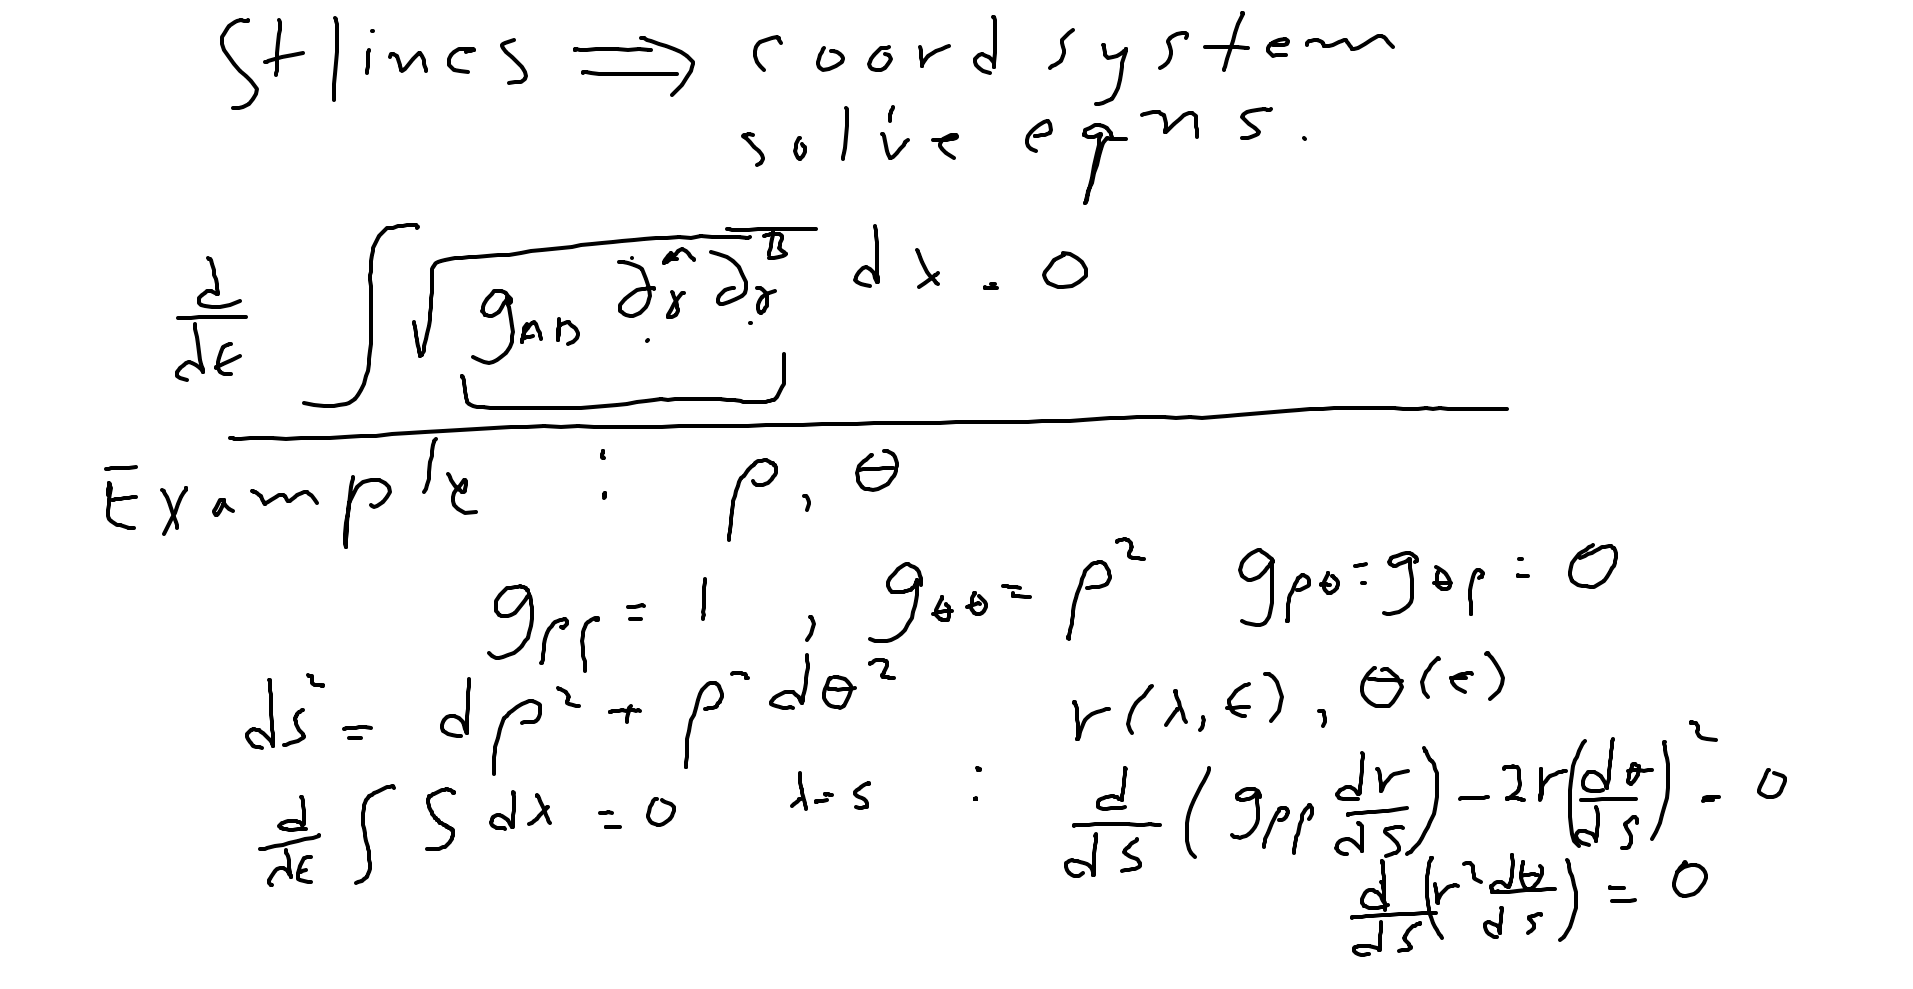 St lines ⟹ coord system
solve eqns.
d/dϵ ∫ √(g_AB ∂_γ^A ∂_γ^B) dλ = 0
Example : ρ, θ
g_ρρ = 1 , g_θθ = ρ² g_ρθ = g_θρ = 0
ds² = dρ² + ρ² dθ² r(λ, ϵ), θ(ϵ)
d/dϵ ∫ S dλ = 0 λ = s : d/ds (g_ρρ dr/ds) − 2r(dθ/ds)² = 0
d/ds (r² dθ/ds) = 0